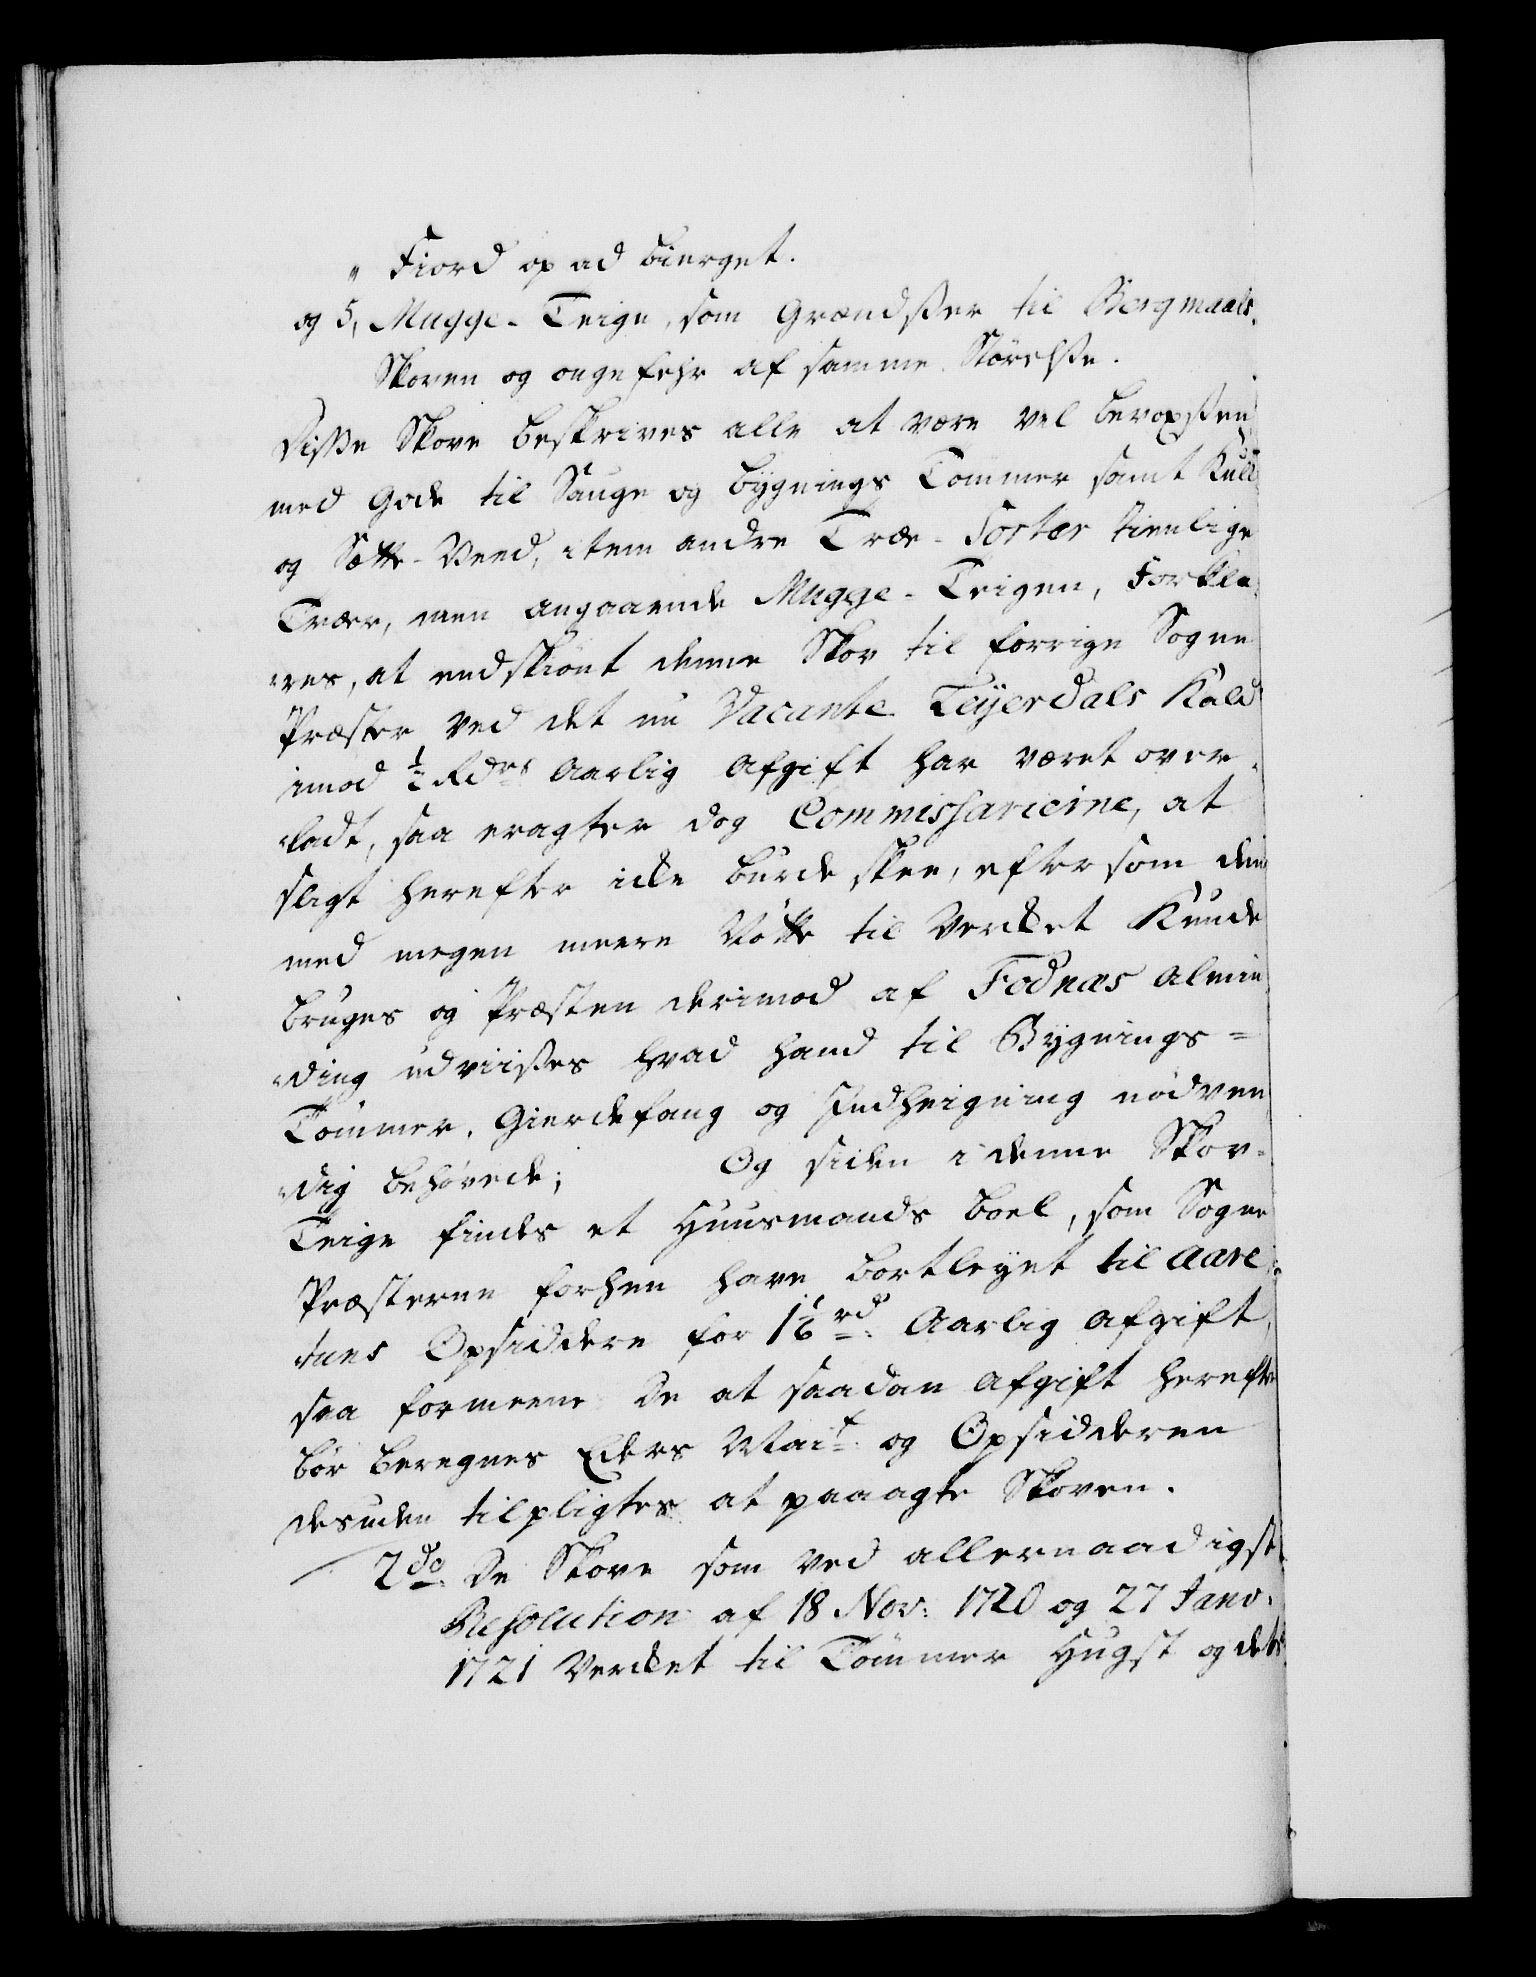 " Fiord op ad bierget.
og 5, Mugge-Teige, som Grændsser til Bergmaals
Skoven og ongefehr af samme Störelsse.
Disse Skove beskrives alle at være vel bevoxssen
med Gode til Sauge og bygnings Tömmer samt Kull
og Sætte-Veed, item andre Træe-Sorter tienlige
Træer, men angaaende Mugge-Teigen, Forkla-
res, at endskiönt denne Skov til forrige Sogne
Præster ved det nu Vacante Teyerdals Kald
imod ½ Rdrs Aarlig Afgift har været over-
ladt, saa eragter dog Commissarierne, at
sligt herefter icke burde skee, eftersom den
med megen meere Nötte til Verket Kunde
bruges og Præsten derimod af Fodnæs Almin
ding udviisses hvad hand til Bygnings=
Tömmer, Gierdefang og Indheigning nödven
dig behövede; Og siden i denne Skov-
Teige findes et Huusmands boel, som Sogne
Præsterne forhen have bortleyet til Aare
tunes Opsiddere for 1½ rd Aarlig Afgift,
saa formeene De at saadan Afgift herefter
bör beregnes Eders Mait og Opsidderen
desuden tilpligtes at paaagte Skoven.
2do De Skove som ved allernaadigst
Resolution af 18 Nov: 1720 og 27 Janv:
1721 Verket til Tömmer Hugst og dets